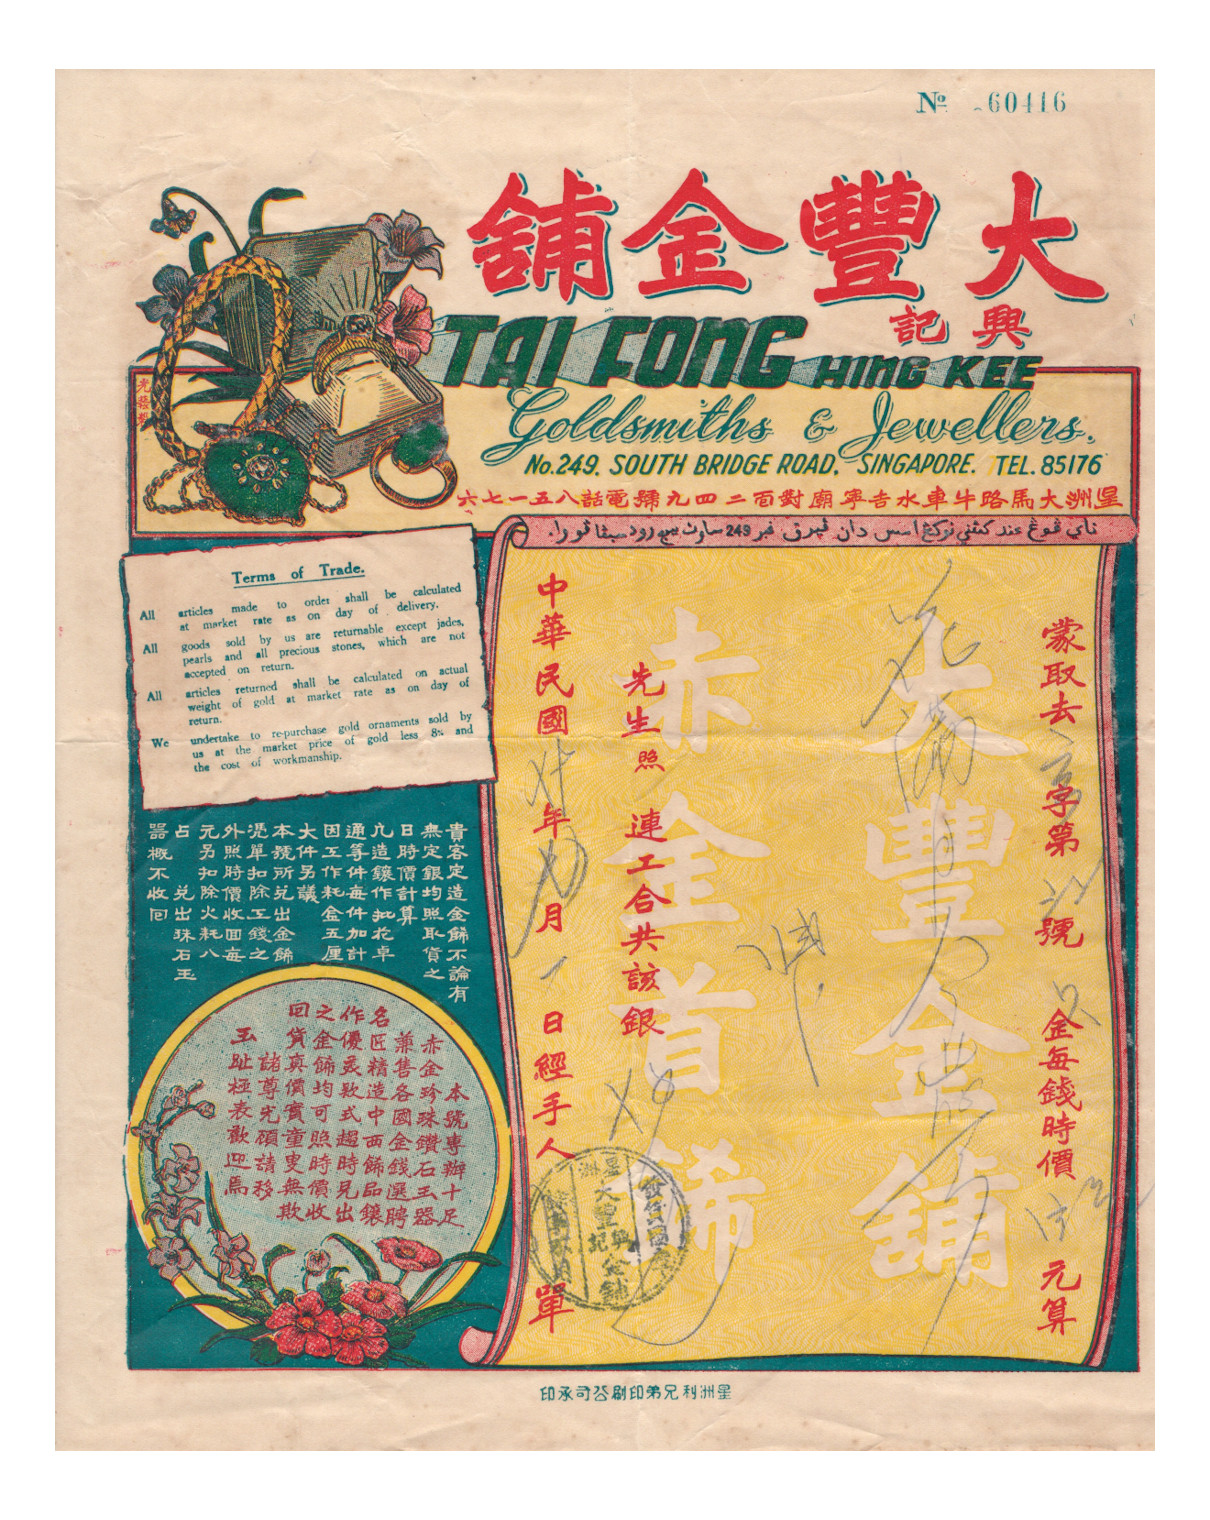 No 60416
大豐金舖
興記
TAI FONG HING KEE
Goldsmiths & Jewellers.
No.249, SOUTH BRIDGE ROAD, SINGAPORE. TEL. 85176
星洲大馬路牛車水吉寧廟對面二四九號電話八五一七六
امس دان 249 ساوث
光藝
Terms of Trade.
All articles made to order shall be calculated
at market rate as on day of delivery.
All goods sold by us are returnable except jades,
pearls and all precious stones, which are not
accepted on return.
All articles returned shall be calculated on actual
weight of gold at market rate as on day of
return.
We undertake to re-purchase gold ornaments sold by
us at the market price of gold less 8% and
the cost of workmanship.
貴客定造金飾不論有
無定銀均照取貨之
日時價計算
凢造鑲作批花卓
通等件每件加計
因工作耗金五厘
大件另議
本號所兌出金飾
憑單扣除工錢之
外照時價收回每
元另扣除火耗八
占 兌出珠石玉
器概不收回
本號專辦十足
赤金珍珠鑽石玉器
兼售各國金錢選聘
名匠精造中西飾品鑲
作優美欵式超時兄出
之金飾均可照時價收
回貨真價實童叟無欺
諸尊光顧請移
玉趾極表歡迎焉
蒙取去 字第 號 金每錢時價 元算
大豐金舖
先生照 連工合共該銀
赤金首飾
中華民國 年 月 日經手人 單
星洲
大豐金舖
興記
星洲利兄弟印刷公司承印